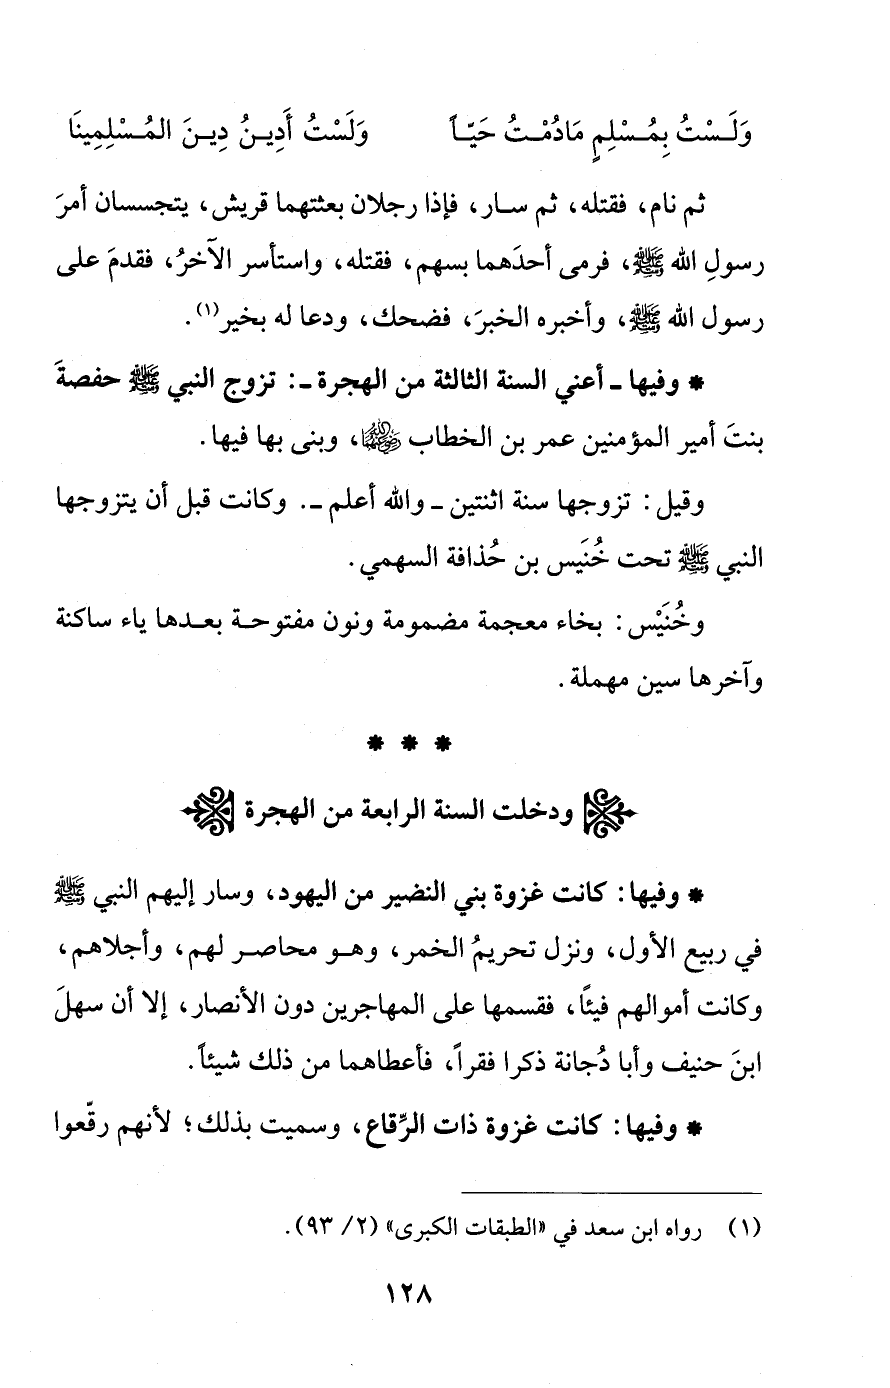 وَلَـسْتُ بِمُـسْلِمٍ مَادُمْـتُ حَيّـاً وَلَسْتُ أَدِيـنُ دِيـنَ المُـسْلِمِينَا
ثم نام، فقتله، ثم سـار، فإذا رجلان بعثتهما قريش، يتجسسان أمرَ
رسولِ الله ﷺ، فرمى أحدَهما بسهم، فقتله، واستأسر الآخرُ، فقدمَ على
رسول الله ﷺ، وأخبره الخبرَ، فضحك، ودعا له بخير(١).
* وفيها ـ أعني السنة الثالثة من الهجرة ـ: تزوج النبي ﷺ حفصةَ
بنتَ أمير المؤمنين عمر بن الخطاب رضي الله عنهما، وبنى بها فيها.
وقيل: تزوجها سنة اثنتين ـ والله أعلم ـ. وكانت قبل أن يتزوجها
النبي ﷺ تحت خُنَيس بن حُذافة السهمي.
وخُنَيْس: بخاء معجمة مضمومة ونون مفتوحـة بعـدها ياء ساكنة
وآخرها سين مهملة.
* * *
ودخلت السنة الرابعة من الهجرة
* وفيها: كانت غزوة بني النضير من اليهود، وسار إليهم النبي ﷺ
في ربيع الأول، ونزل تحريمُ الخمر، وهـو محاصـر لهم، وأجلاهم،
وكانت أموالهم فيئًا، فقسمها على المهاجرين دون الأنصار، إلا أن سهلَ
ابنَ حنيف وأبا دُجانة ذكرا فقراً، فأعطاهما من ذلك شيئاً.
* وفيها: كانت غزوة ذات الرِّقاع، وسميت بذلك؛ لأنهم رقّعوا
(١) رواه ابن سعد في «الطبقات الكبرى» (٢/ ٩٣).
١٢٨